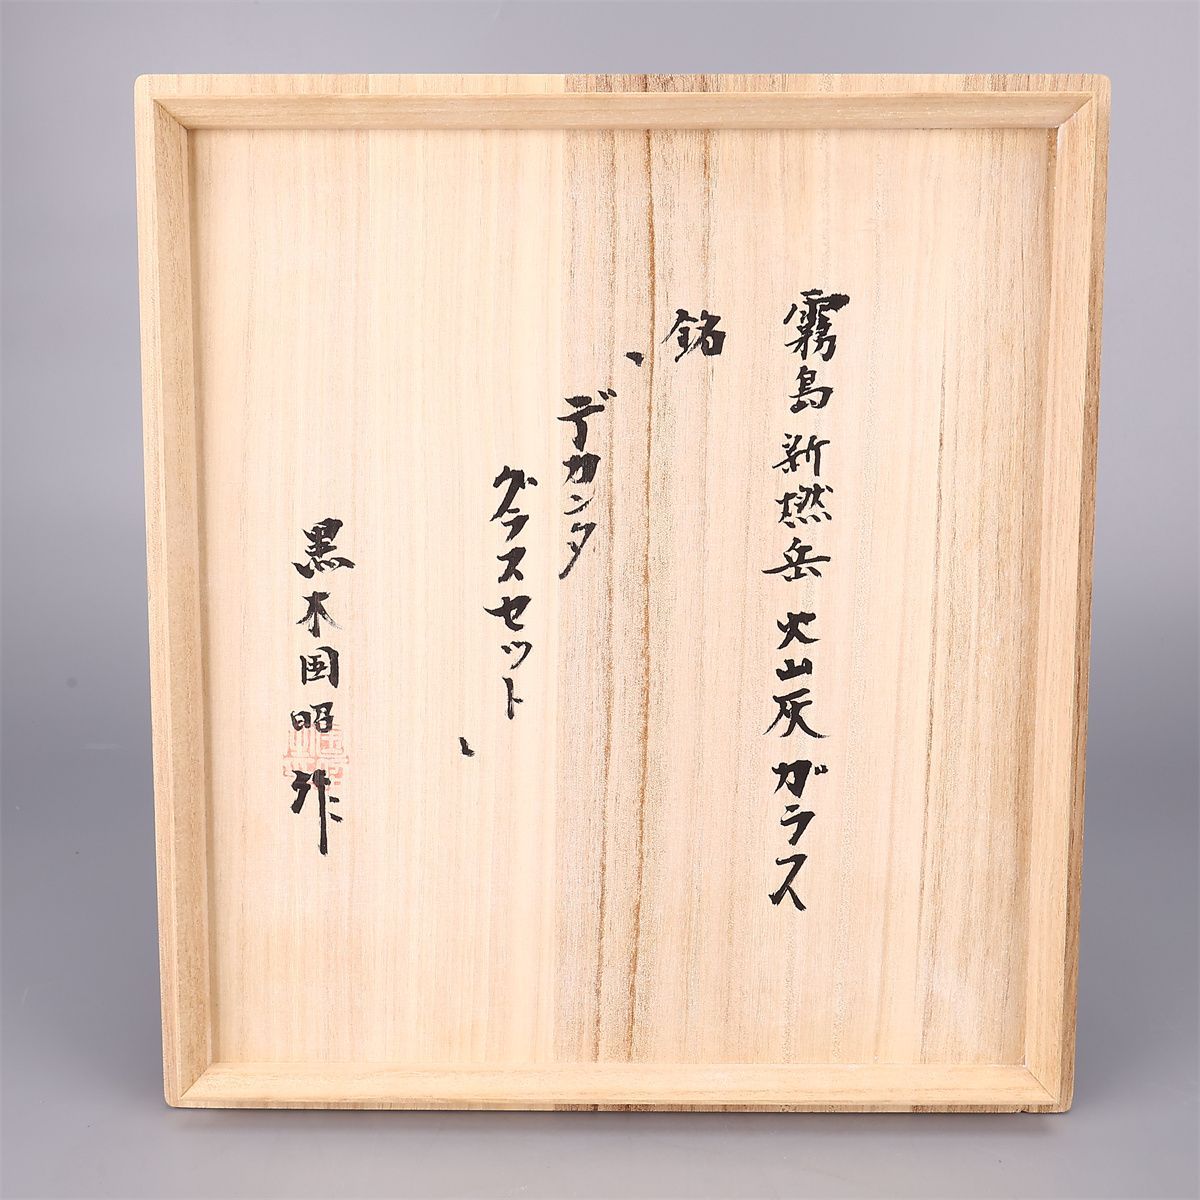 霧島新燃岳火山灰ガラス
銘
、デカンタ
グラスセット、
黒木国昭作